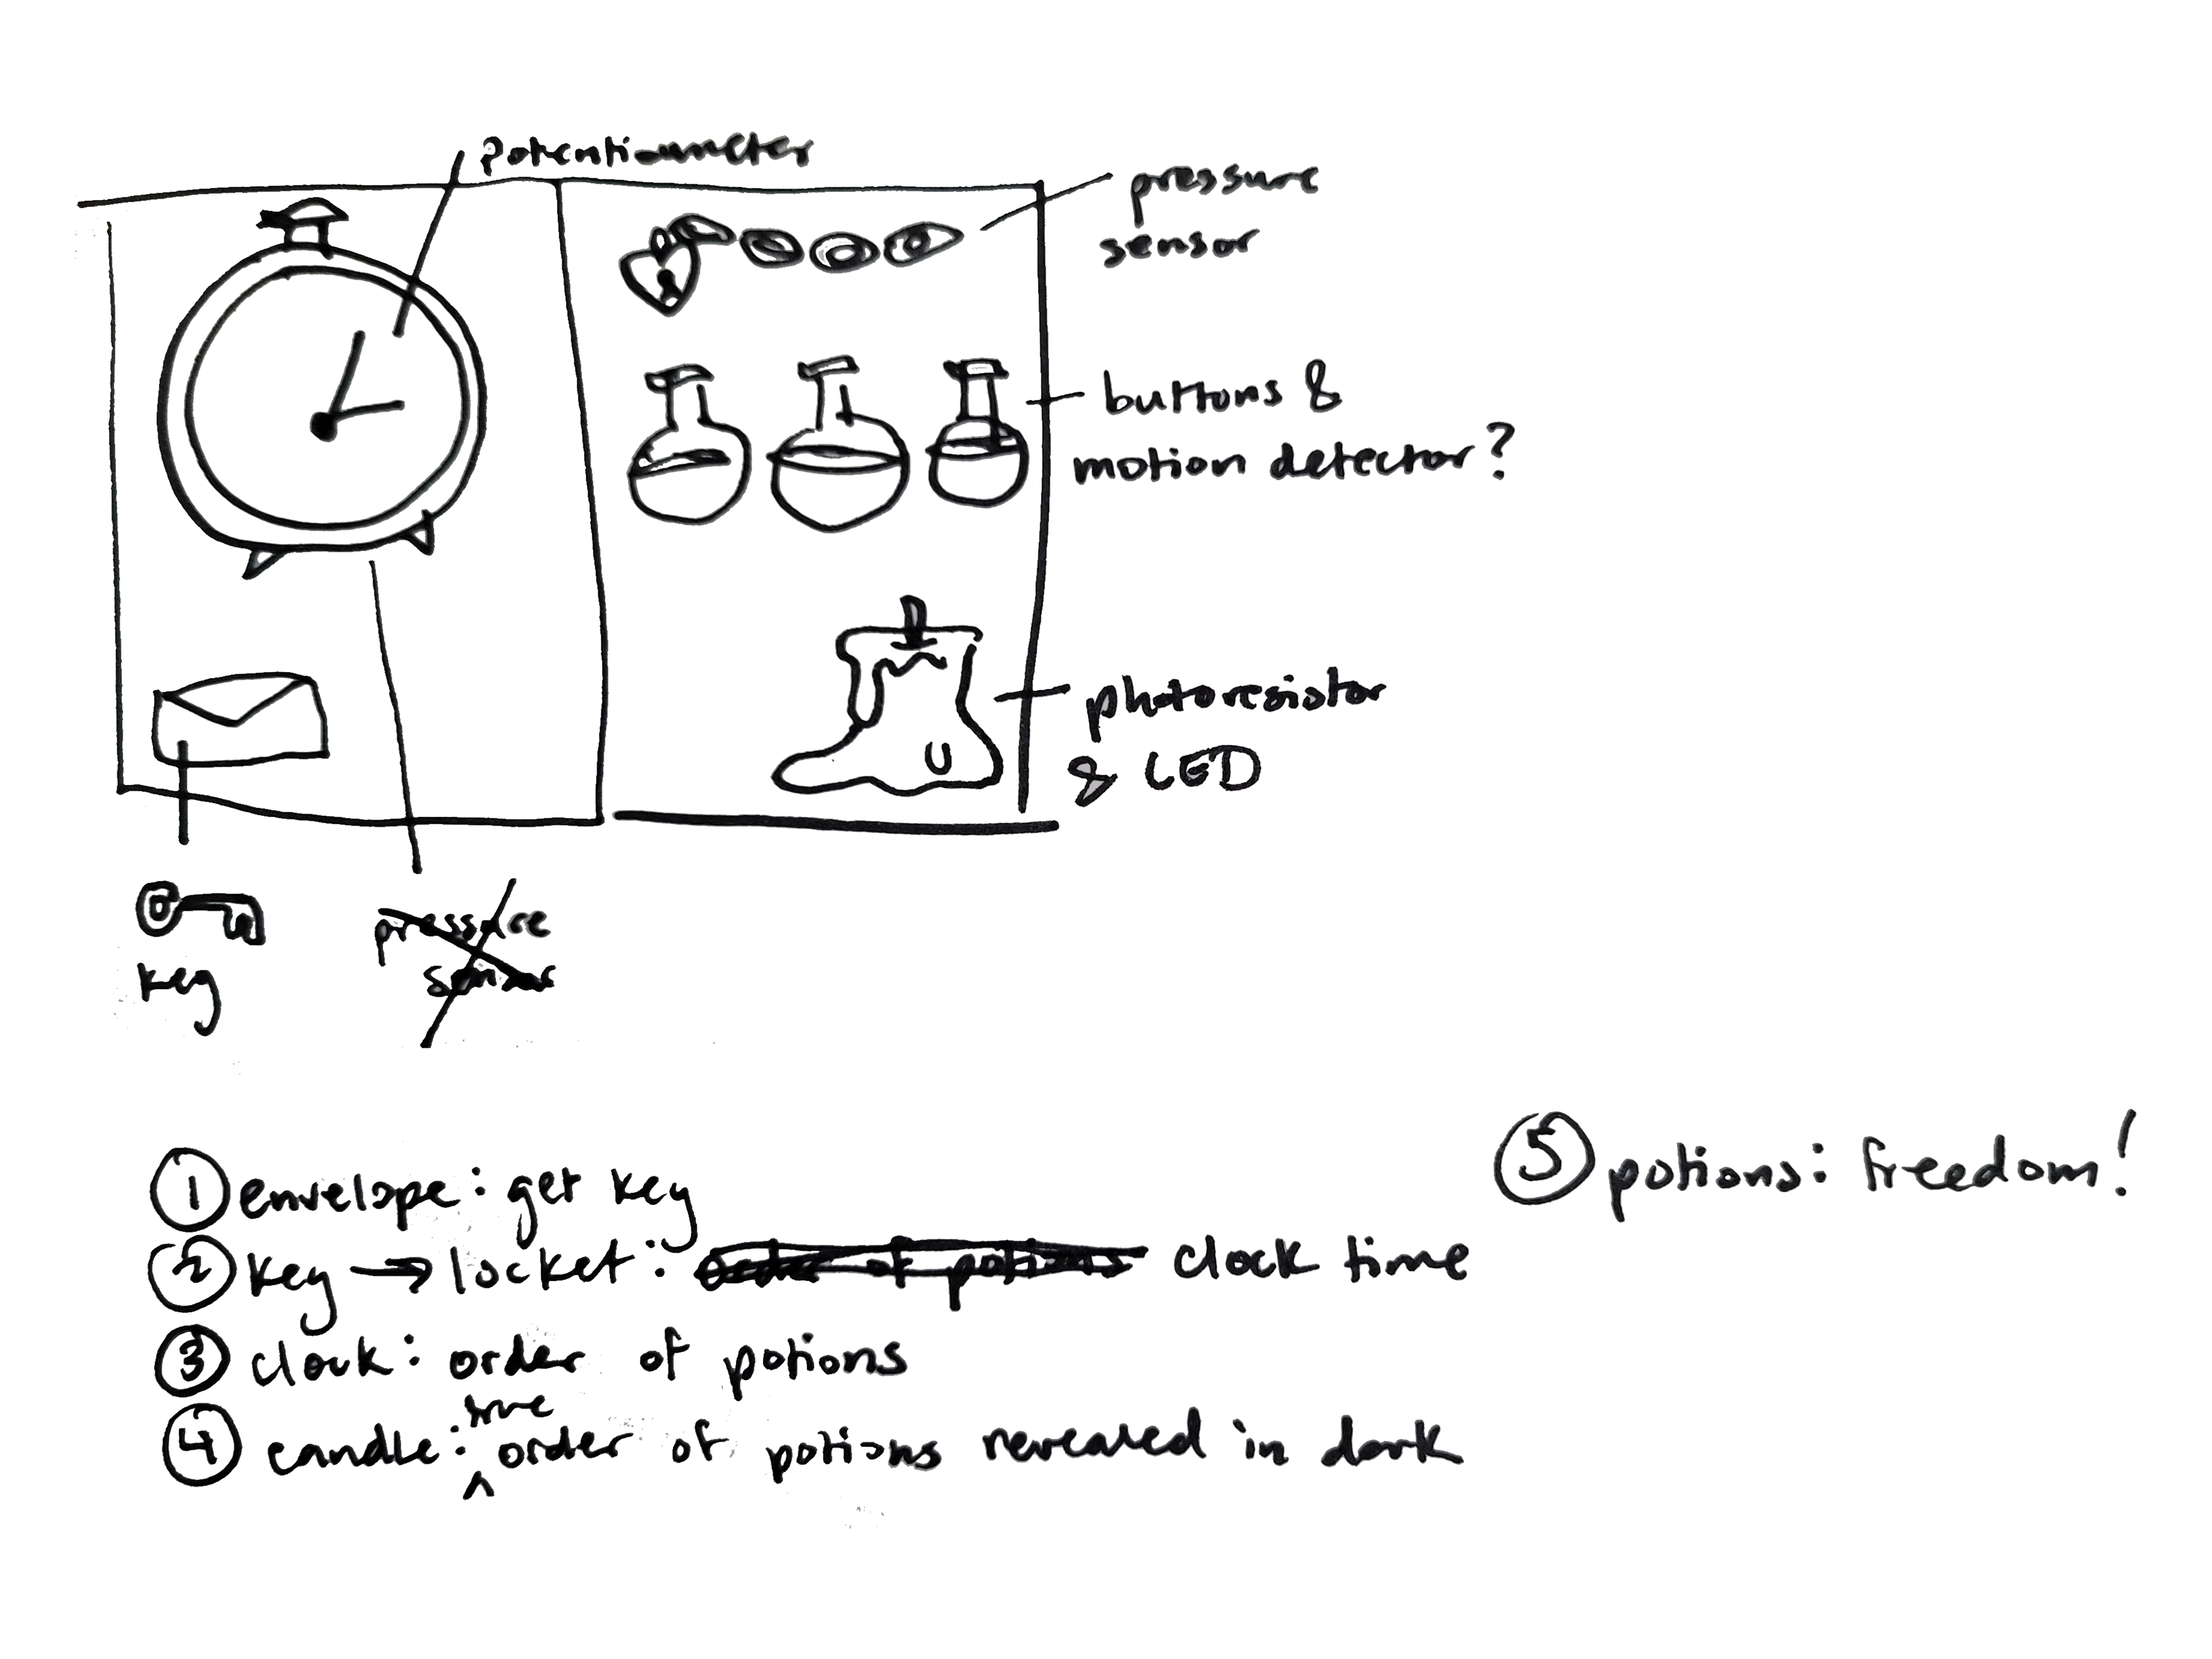 Potentiometer
pressure
sensor
buttons &
motion detector?
photoresistor
& LED
key
pressure
sensor
① envelope: get key
② key → locket: order of potions clock time
③ clock: order of potions
④ candle: true order of potions revealed in dark
⑤ potions: freedom!